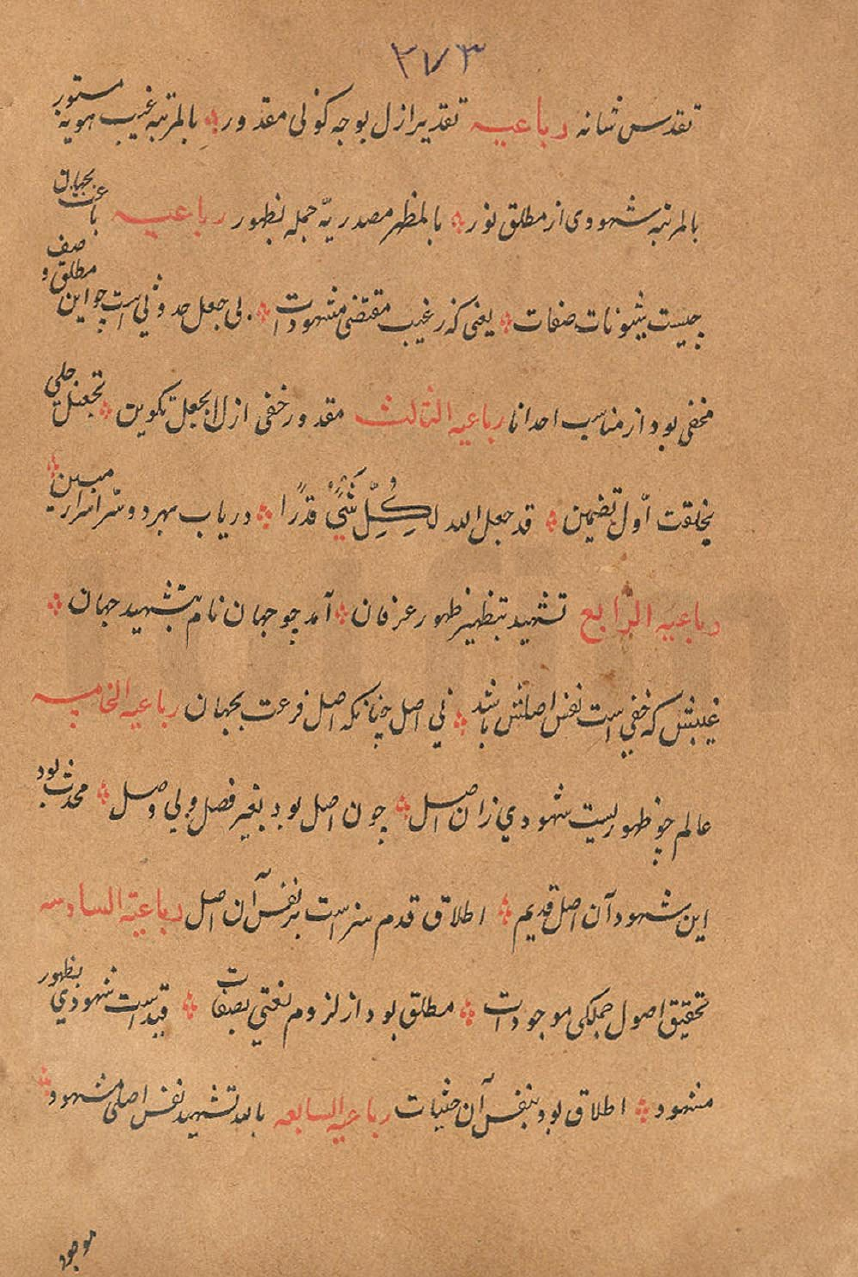 ۲۷۳
تقدس شانه رباعیه تقدیر ازل بوجه کونی مقدور بالمرتبه غیب هویه مستور
بالمرتبه شهودی از مطلق نور بالمظهر مصدریه جمله بظهور رباعیه باعث بجهان
چیست شیونات صفات یعنی که ز غیب مقتضی مشهودات بی جعل حدوثی است چو این مطلق و صف
مخفی بود از مناسب احدانا رباعیه الثالث مقدور خفی ازلا بجعل تکوین تجعل جلی
بخلقت اول تضمین قد جعل الله لکل شیء قدرا دریاب بهر دو سر اسرار مبین
رباعیه الرابع تشهید بتظهیر ظهور عرفان آمد چو جهان نام بتشهید جهان
غیبش که خفی است نفس اصلش باشد نی اصل چنانکه اصل فرعت بجهان رباعیه الخامسه
عالم چو ظهوریست شهودی زان اصل چون اصل بود بغیر فصل و بی وصل محدث بود
این شهود آن اصل قدیم اطلاق قدم سزاست بر نفس آن اصل رباعیه السادسه
تحقیق اصول جملگی موجودات مطلق بود از لزوم نعتی بصفات قید است شهودی بظهور
مشهود اطلاق بود بنفس آن حیثیات رباعیه السابعه بالله تشهید نفس اصلی مشهود
موجود